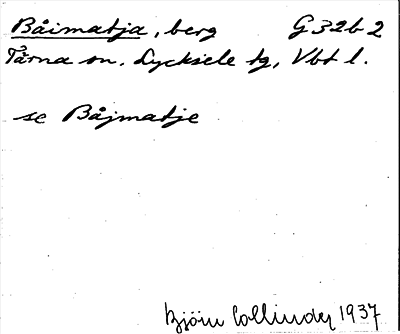 Båimatja, berg G 32 b 2
Tärna sn. Lycksele tg, Vbt l.
se Båjmatje
Björn Collinder 1937